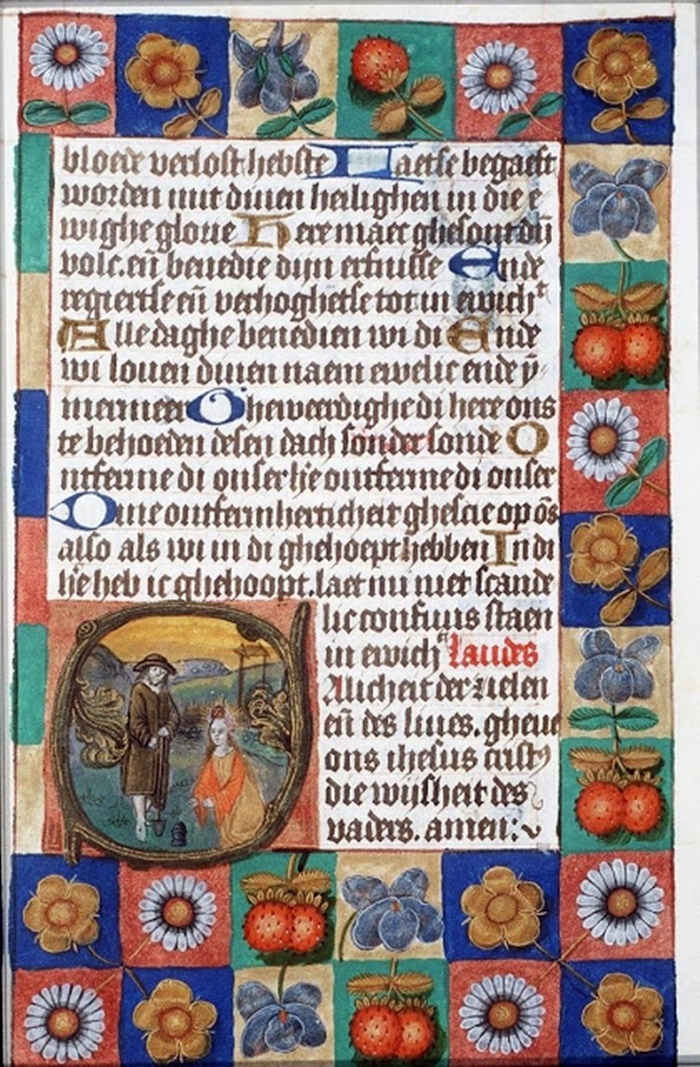 bloede verlost hebste Laetse begaeft
worden mit dinen heilighen in die e
wighe glorie Here maec ghesont dij
volc. en̄ benedie dijn erfnisse Ende
regiertse en̄ verhoghetse tot in ewichᵗ
Alle daghe benedien wi di Ende
wi louen dinen naem ewelic ende ȳ
mermeer Ghewerdighe di here ons
te behoeden desen dach sonder sonde O
ntferme di onser h̄e ontferme di onser
Dine ontfermherticheit ghescie op ōs
also als wi in di ghehoept hebben In di
h̄e heb ic ghehoopt. laet mi niet scande
lic confuus staen
in ewichᵗ Laudes
Suicheit der zielen
en̄ des liues. gheue
ons ihesus cristᵘˢ
die wijsheit des
vaders. amen: